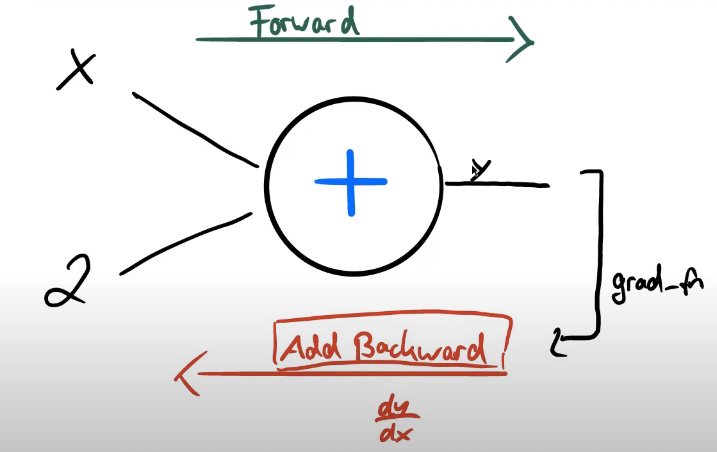 Forward
x
+
y
2
grad_fn
Add Backward
dy
dx